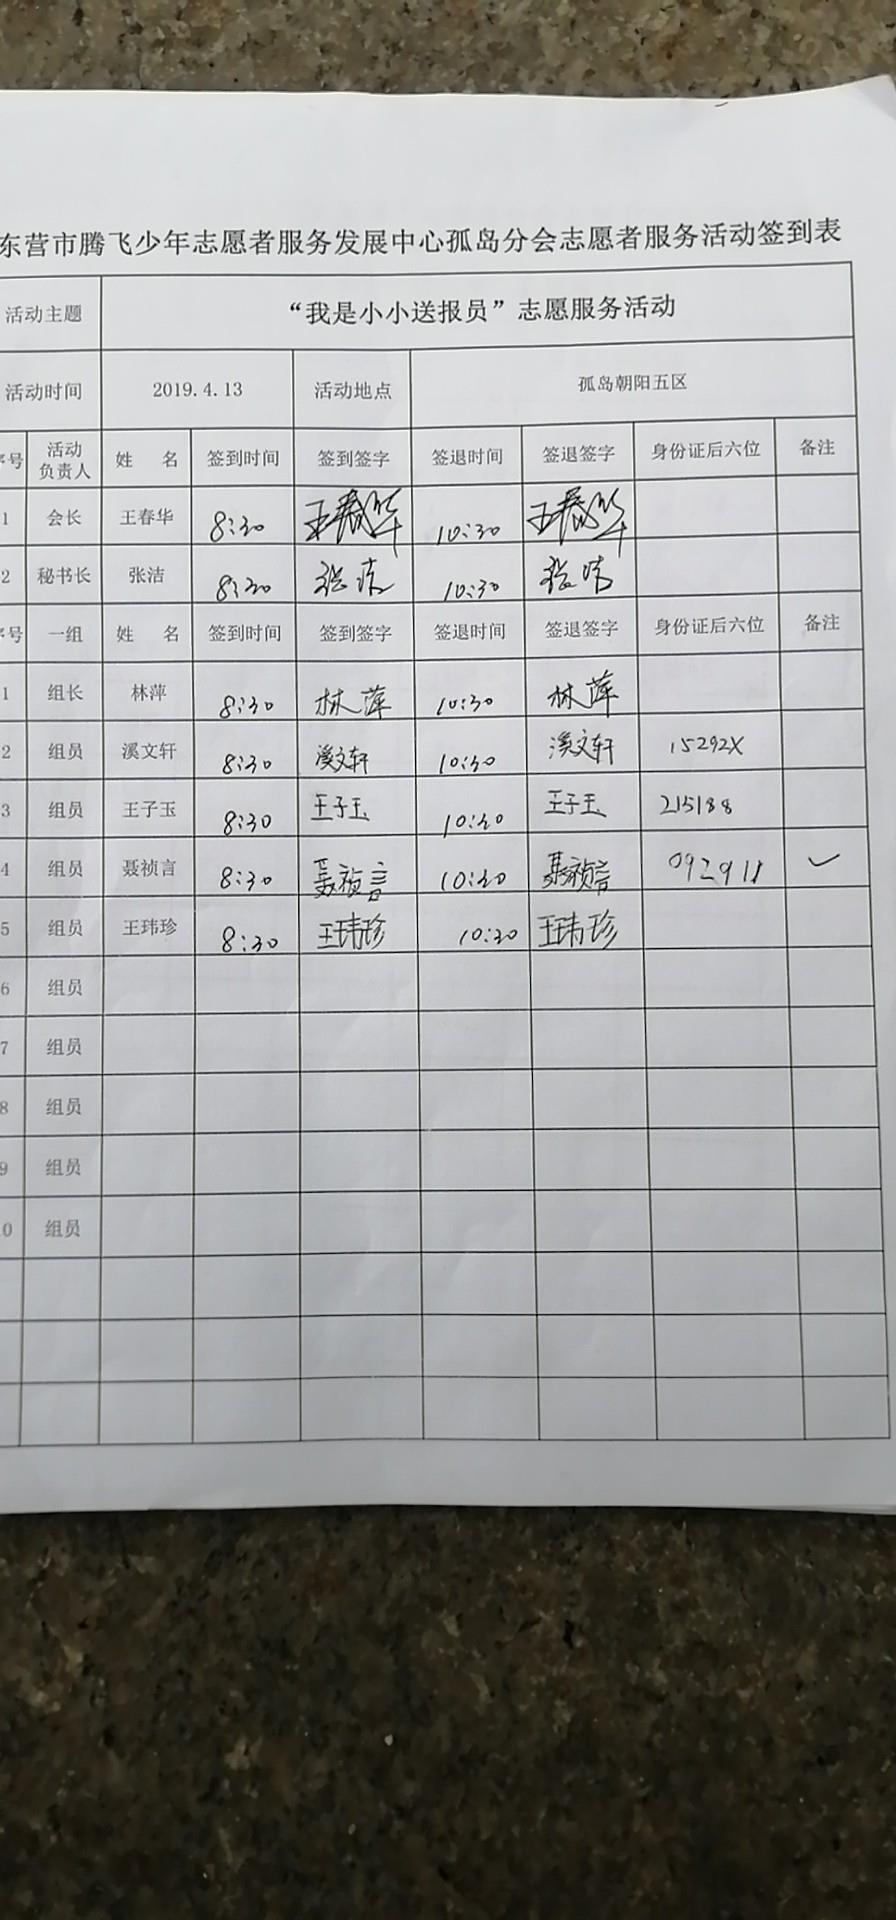 东营市腾飞少年志愿者服务发展中心孤岛分会志愿者服务活动签到表
活动主题 “我是小小送报员”志愿服务活动
活动时间 2019.4.13 活动地点 孤岛朝阳五区
序号 活动负责人 姓 名 签到时间 签到签字 签退时间 签退签字 身份证后六位 备注
1 会长 王春华 8:30 王春华 10:30 王春华
2 秘书长 张洁 8:30 张洁 10:30 张洁
序号 一组 姓 名 签到时间 签到签字 签退时间 签退签字 身份证后六位 备注
1 组长 林萍 8:30 林萍 10:30 林萍
2 组员 溪文轩 8:30 溪文轩 10:30 溪文轩 15292X
3 组员 王子玉 8:30 王子玉 10:30 王子玉 215188
4 组员 聂祯言 8:30 聂祯言 10:30 聂祯言 092911 ✓
5 组员 王玮珍 8:30 王玮珍 10:30 王玮珍
6 组员
7 组员
8 组员
9 组员
0 组员